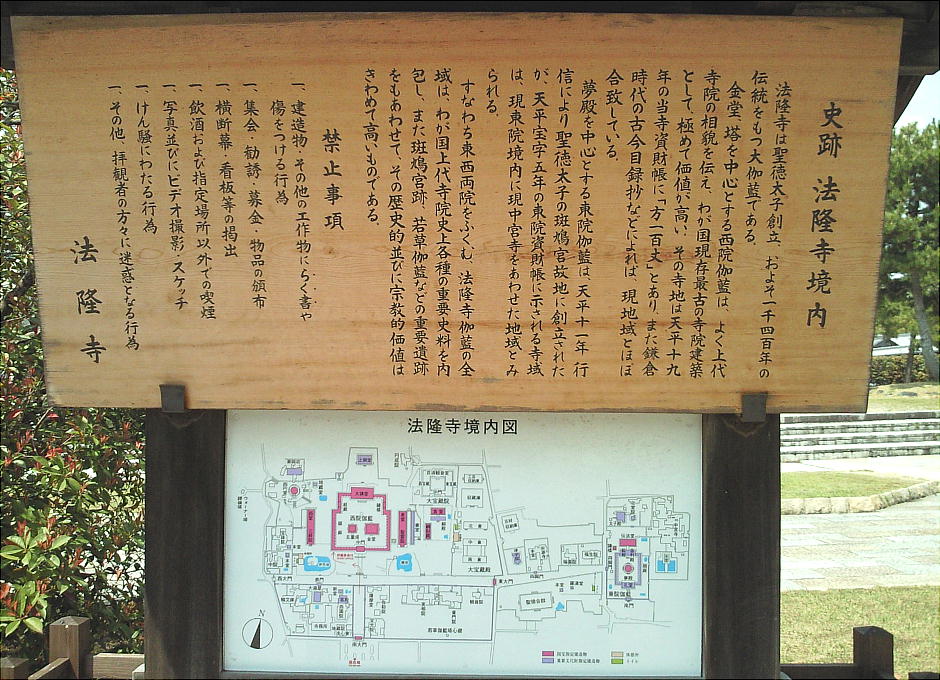 史跡 法隆寺境内
法隆寺は聖徳太子創立、およそ一千四百年の
伝統をもつ大伽藍である。
金堂、塔を中心とする西院伽藍は、よく上代
寺院の相貌を伝え、わが国現存最古の寺院建築
として、極めて価値が高い、その寺地は天平十九
年の当寺資財帳に「方一百丈」とあり、また鎌倉
時代の古今目録抄などによれば、現地域とほぼ
合致している。
夢殿を中心とする東院伽藍は、天平十一年 行
信により聖徳太子の斑鳩宮故地に創立された
が、天平宝字五年の東院資財帳に示される寺域
は、現東院境内に現中宮寺をあわせた地域とみ
られる。
すなわち東西両院をふくむ、法隆寺伽藍の全
域は、わが国上代寺院史上各種の重要史料を内
包し、また斑鳩宮跡、若草伽藍などの重要遺跡
をもあわせて、その歴史的並びに宗教的価値は
きわめて高いものである。
禁止事項
一、建造物・その他の工作物にらく書や
傷をつける行為
一、集会・勧誘・募金・物品の頒布
一、横断幕・看板等の掲出
一、飲酒および指定場所以外での喫煙
一、写真並びにビデオ撮影・スケッチ
一、けん騒にわたる行為
一、その他、拝観者の方々に迷惑となる行為
法隆寺
法隆寺境内図
上御堂
大講堂
西院伽藍
金堂
五重塔
中門
大宝蔵院
大宝蔵殿
西大門
東大門
南大門
聖徳会館
若草伽藍塔心礎
伝法堂
夢殿
東院伽藍
南門
N
国宝指定建造物
重要文化財指定建造物
休憩所
トイレ